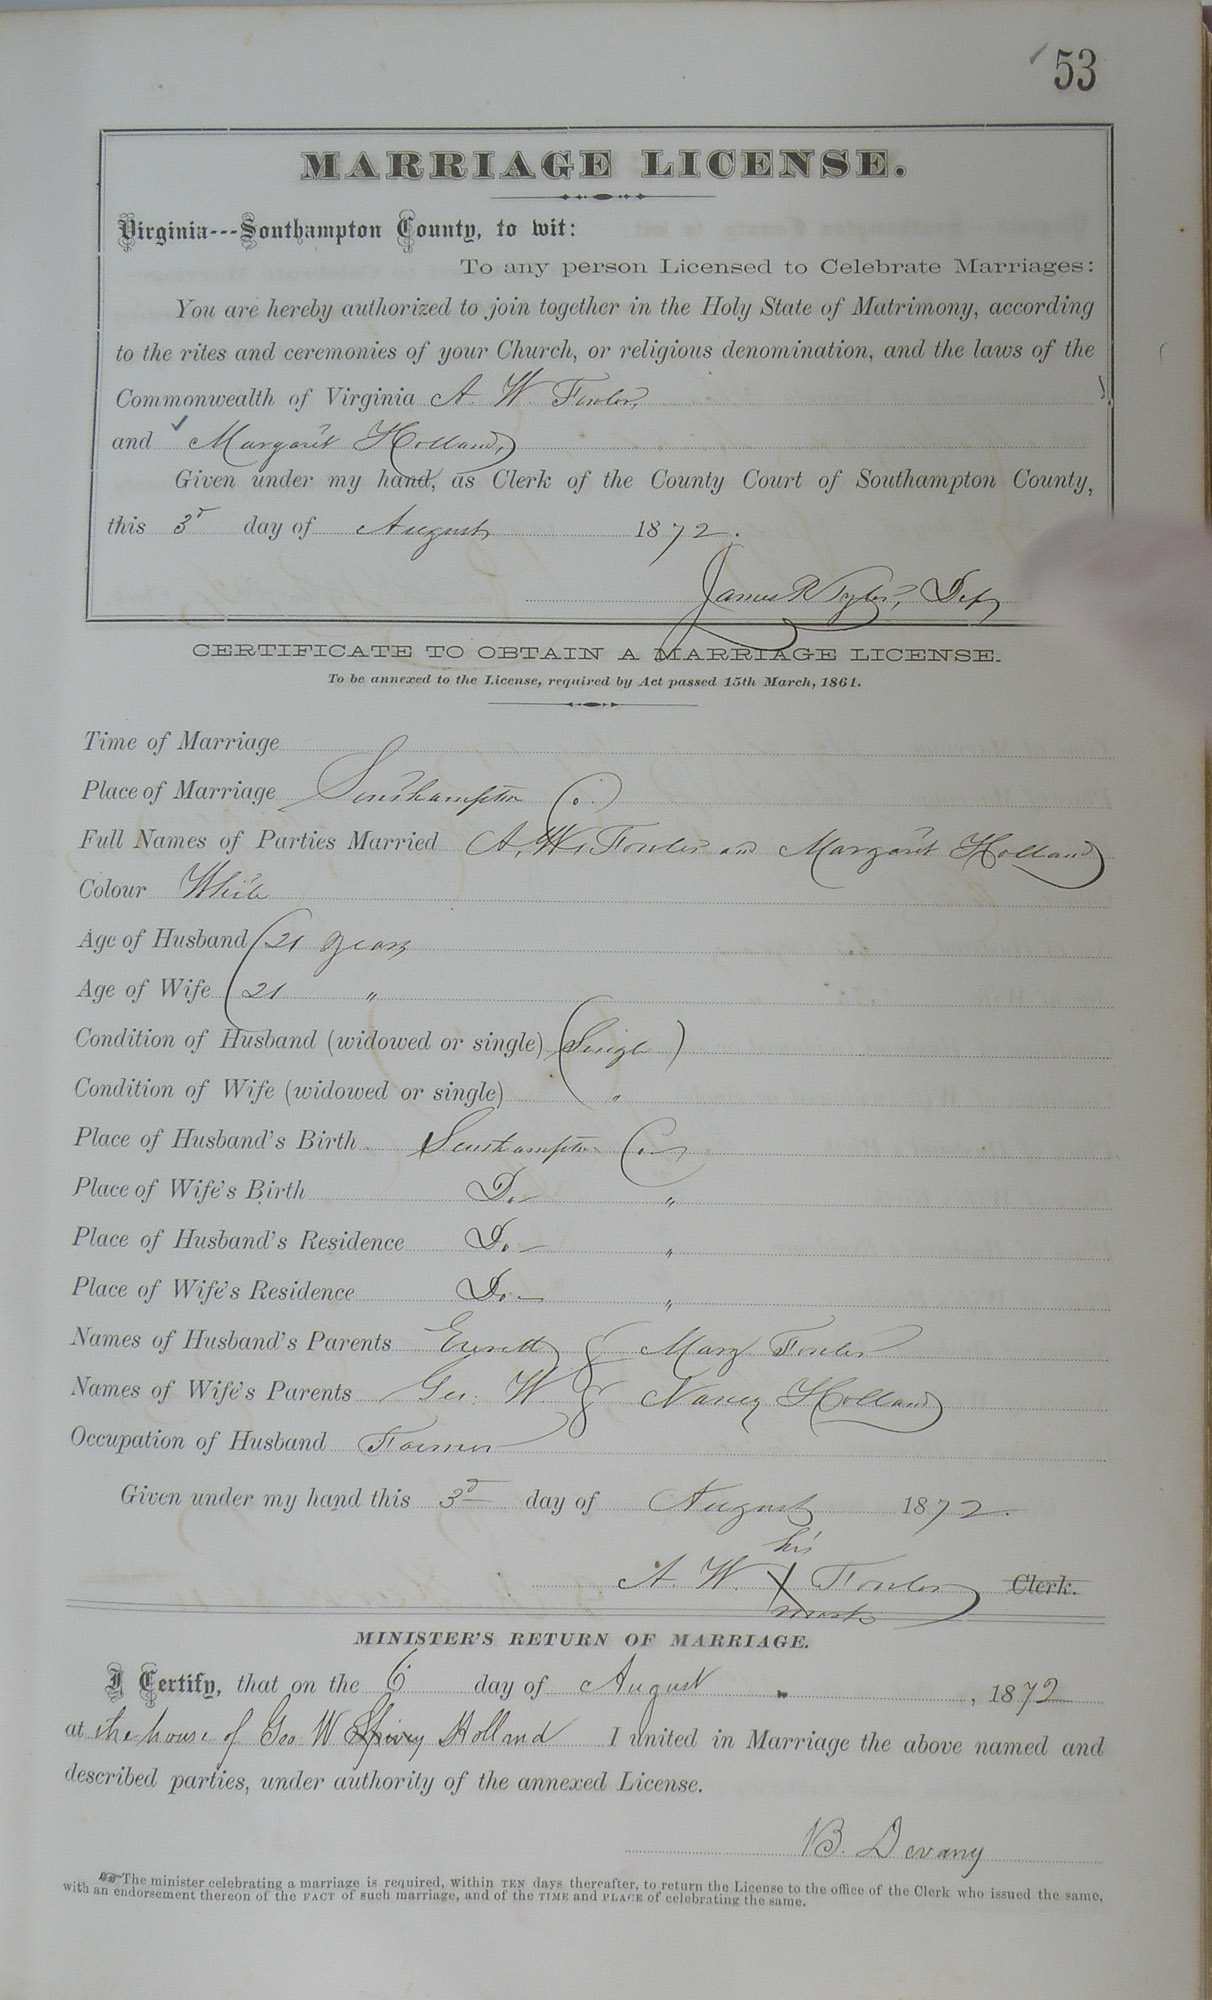 53
MARRIAGE LICENSE.
Virginia---Southampton County, to wit:
To any person Licensed to Celebrate Marriages:
You are hereby authorized to join together in the Holy State of Matrimony, according
to the rites and ceremonies of your Church, or religious denomination, and the laws of the
Commonwealth of Virginia A. W Fowler,
and Margaret Holland,
Given under my hand, as Clerk of the County Court of Southampton County,
this 3d day of August 1872.
James R Tyler, Dep
CERTIFICATE TO OBTAIN A MARRIAGE LICENSE.
To be annexed to the License, required by Act passed 15th March, 1861.
Time of Marriage
Place of Marriage Southampton Co.
Full Names of Parties Married A. W. Fowler and Margaret Holland
Colour White
Age of Husband 21 years
Age of Wife 21 "
Condition of Husband (widowed or single) Single
Condition of Wife (widowed or single) "
Place of Husband's Birth Southampton Co
Place of Wife's Birth Do - "
Place of Husband's Residence Do - "
Place of Wife's Residence Do - "
Names of Husband's Parents Everett & Mary Fowler
Names of Wife's Parents Geo. W. & Nancy Holland
Occupation of Husband Farmer
Given under my hand this 3d day of August 1872.
his
A. W. X Fowler Clerk.
mark
MINISTER'S RETURN OF MARRIAGE.
I Certify, that on the 6 day of August , 1872
at the house of Geo W Spivey Holland I united in Marriage the above named and
described parties, under authority of the annexed License.
B. Devany
☞The minister celebrating a marriage is required, within TEN days thereafter, to return the License to the office of the Clerk who issued the same,
with an endorsement thereon of the FACT of such marriage, and of the TIME and PLACE of celebrating the same.